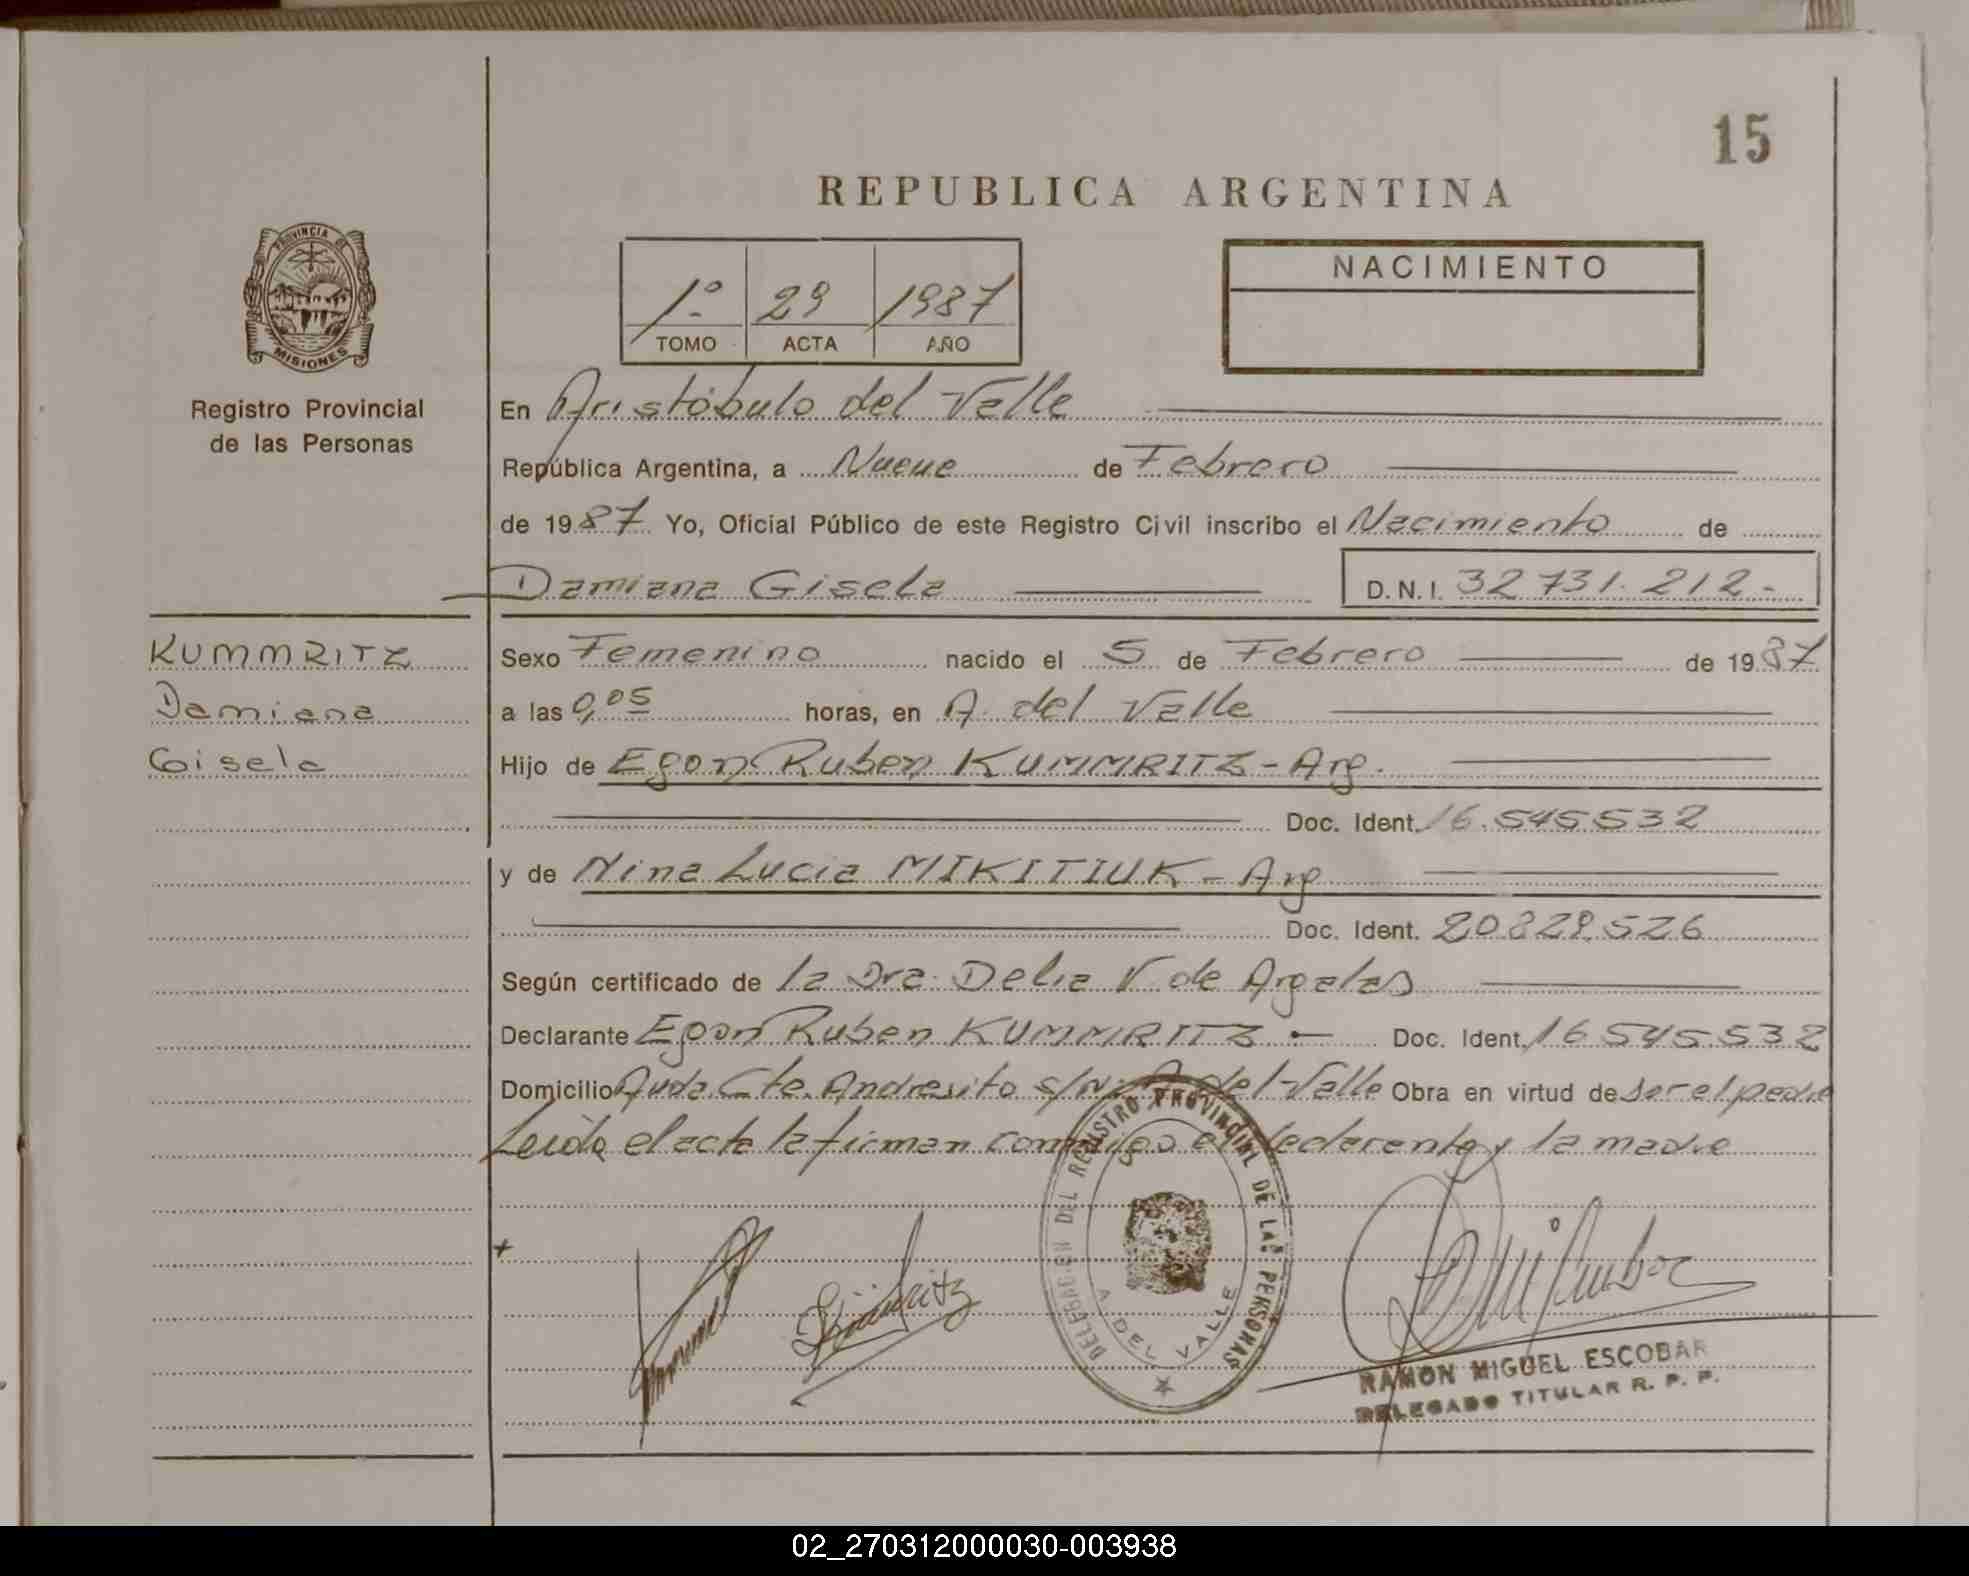 15
REPUBLICA ARGENTINA
PROVINCIA DE
MISIONES
Registro Provincial
de las Personas
1º 29 1987
TOMO ACTA AÑO
NACIMIENTO
En Aristóbulo del Valle
República Argentina, a Nueve de Febrero
de 1987 Yo, Oficial Público de este Registro Civil inscribo el Nacimiento de
Damiana Gisela D.N.I. 32731.212-
KUMMRITZ
Damiana
Gisela
Sexo Femenino nacido el 5 de Febrero de 1987
a las 0,05 horas, en A. del Valle
Hijo de Egon Ruben KUMMRITZ - Arg.
Doc. Ident. 16.545532
y de Nina Lucia MIKITIUK - Arg
Doc. Ident. 20.829.526
Según certificado de la Dra. Delia V. de Argalas
Declarante Egon Ruben KUMMRITZ - Doc. Ident. 16545.532
Domicilio Avda. Cte. Andresito s/Nº A. del Valle Obra en virtud de ser el padre
Leida el acta la firman conmigo el declarante y la madre
DELEGACION DEL REGISTRO PROVINCIAL DE LAS PERSONAS
A. DEL VALLE
RAMON MIGUEL ESCOBAR
DELEGADO TITULAR R. P. P.
02_270312000030-003938